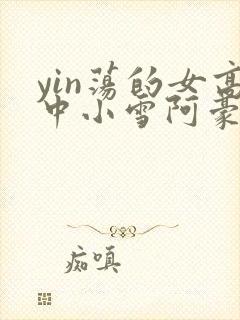 yin荡的女高
中小雪阿豪
痴嗔